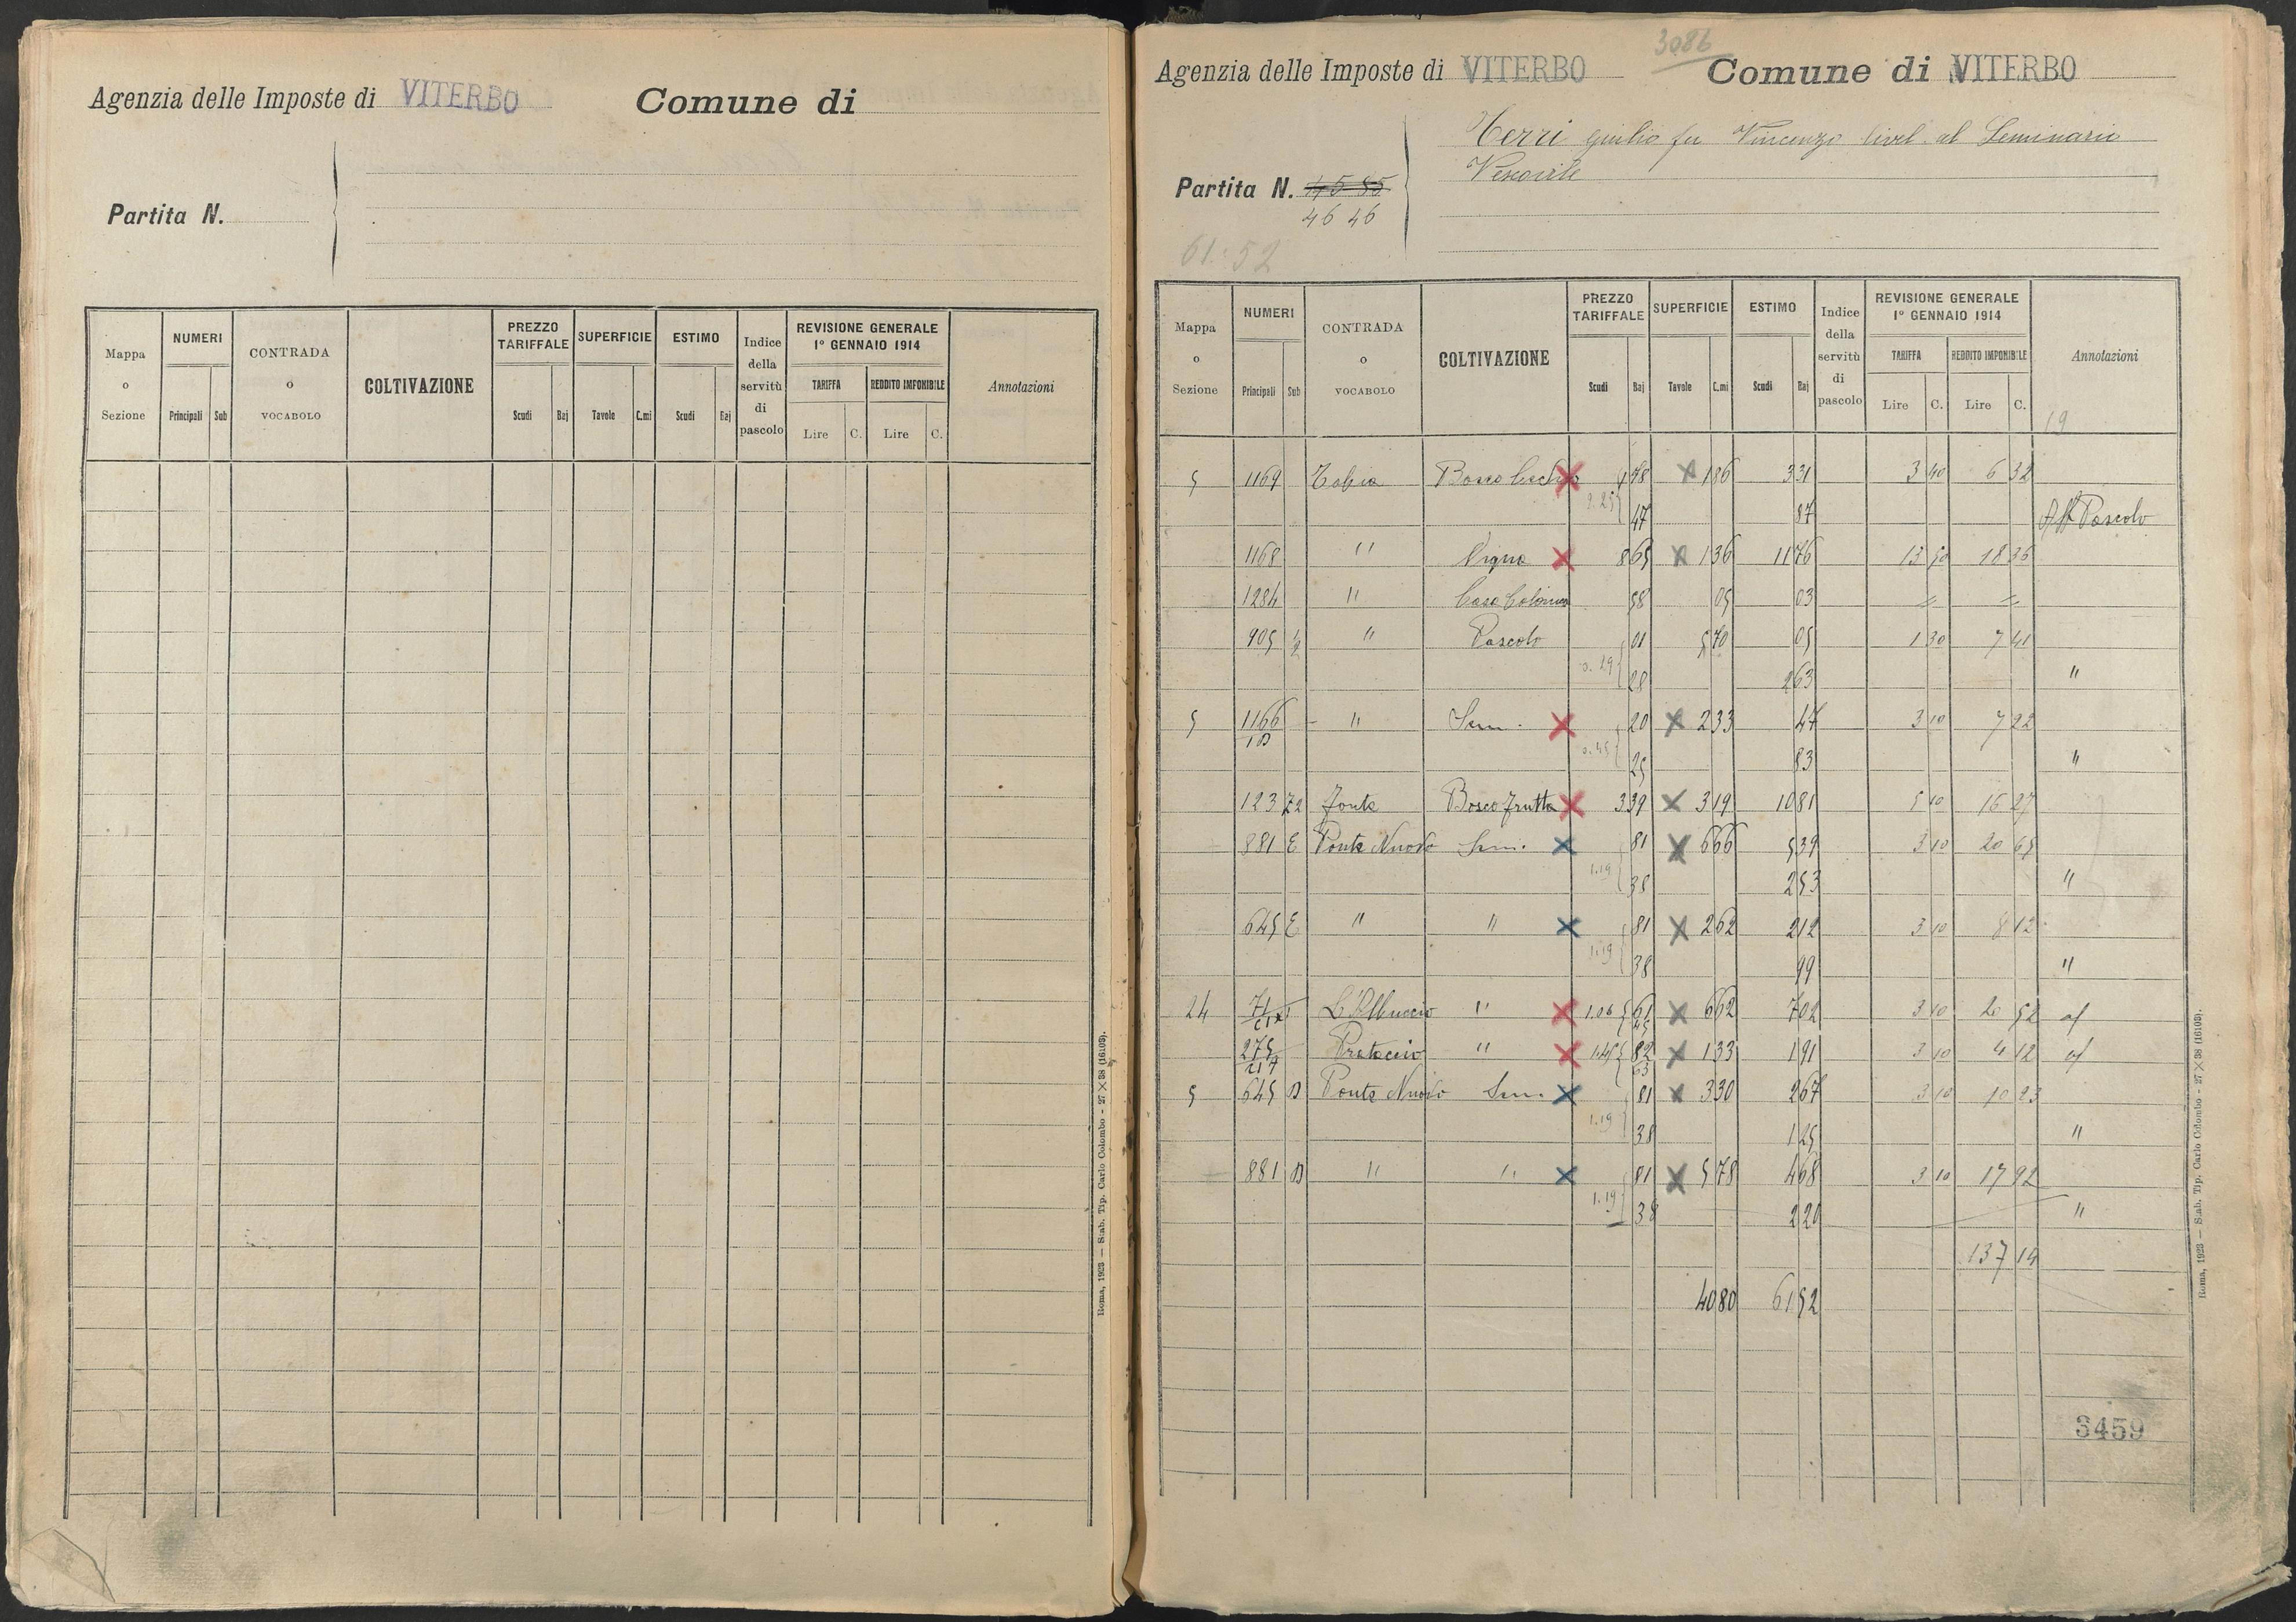 Agenzia delle Imposte di VITERBO Comune di
Partita N.
Mappa o Sezione NUMERI Principali Sub CONTRADA o VOCABOLO COLTIVAZIONE PREZZO TARIFFALE Scudi Baj SUPERFICIE Tavole C.mi ESTIMO Scudi Baj Indice della servitù di pascolo REVISIONE GENERALE 1º GENNAIO 1914 TARIFFA Lire C. REDDITO IMPONIBILE Lire C. Annotazioni
Roma, 1923 — Stab. Tip. Carlo Colombo - 27 X 38 (16103).
3086
Agenzia delle Imposte di VITERBO Comune di VITERBO
giulio fu Vincenzo livel. al Seminario
Vescovile
Partita N. 4585
4646
61.52
Mappa o Sezione NUMERI Principali Sub CONTRADA o VOCABOLO COLTIVAZIONE PREZZO TARIFFALE Scudi Baj SUPERFICIE Tavole C.mi ESTIMO Scudi Baj Indice della servitù di pascolo REVISIONE GENERALE 1º GENNAIO 1914 TARIFFA Lire C. REDDITO IMPONIBILE Lire C. Annotazioni
19
5 1169 Bosco X X 1 86 3 31 3 40 6 32
47 87 Aff Pascolo
1168 " Vigna X 8 65 X 1 36 11 76 13 50 18 36
1284 " Casa Colonica 58 05 03 = =
905 ½ " Pascolo 01 5 70 05 1 30 7 41
0.29 28 2 63 "
5 1166 " Sem. X 20 X 2 33 47 3 10 7 22
0.45 25 83 "
123 72 Fonte Bosco frutta X 3 39 X 3 19 10 81 5 10 16 27
881 E Ponte Nuovo Sem. X 81 X 6 66 5 39 3 10 20 65
1.19 38 2 53 "
645 E " " X 81 X 2 62 2 12 3 10 8 12
1.19 38 99 "
24 71 " X 1.06 61 X 6 62 7 02 3 10 20 52 af
45
275 Prataccio " X 1.45 82 X 1 33 1 91 3 10 4 12 af
217 63
5 645 D Ponte Nuovo Sem. X 81 X 3 30 2 67 3 10 10 23
1.19 38 1 25 "
881 D " " X 81 X 5 78 4 68 3 10 17 92
1.19 38 2 20 "
137 14
40 80 61 52
3459
Roma, 1923 — Stab. Tip. Carlo Colombo - 27 X 38 (16103).